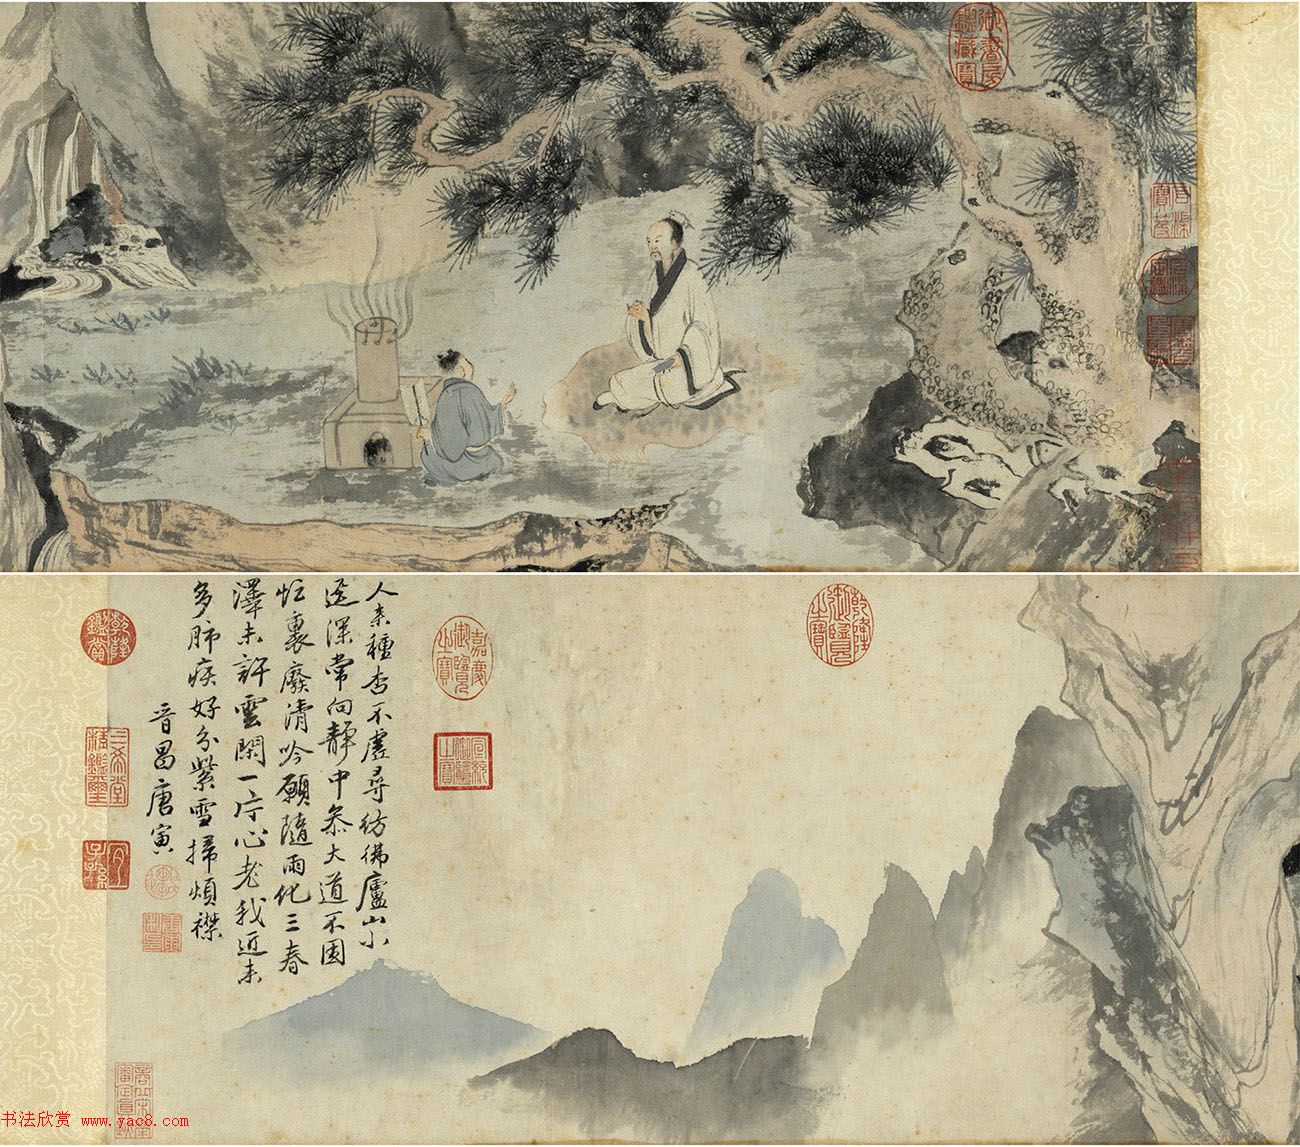 御書房鑑藏寶
乾隆御覽之寶
嘉慶御覽之寶
宣統御覽之寶
人來種杏不虛尋彷彿廬山小
逕深常向靜中參大道不因
忙裏廢清吟願隨雨化三春
澤未許雲閑一片心老我近來
多肺疾好分紫雪掃煩襟
晉昌唐寅
乾隆鑑賞
三希堂精鑑璽
宜子孫
书法欣赏 www.yac8.com